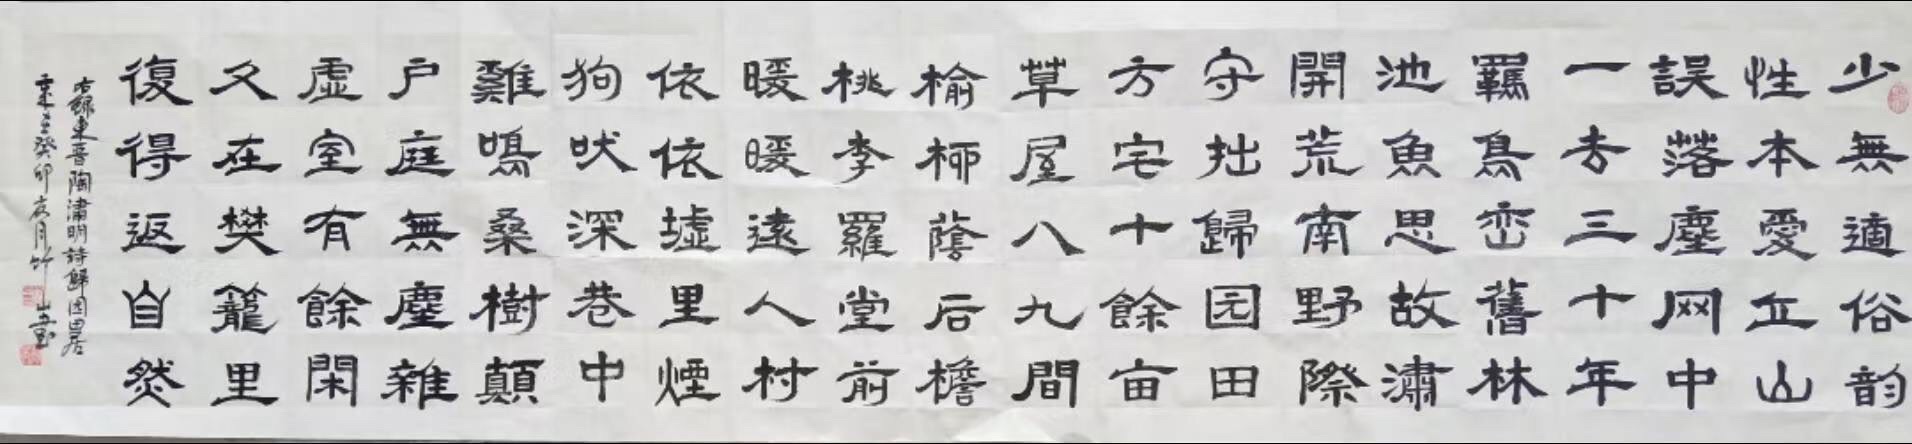 少無適俗韵
性本愛丘山
誤落塵网中
一去三十年
羈鳥峦舊林
池魚思故潚
開荒南野際
守拙歸园田
方宅十餘亩
草屋八九間
榆桺蔭后檐
桃李羅堂前
暖暖遠人村
依依墟里煙
狗吠深巷中
雞鳴桑樹顛
户庭無塵雜
虚室有餘閑
久在樊籠里
復得返自然
右錄東晉陶潚明詩歸园田居
癸卯亥月竹